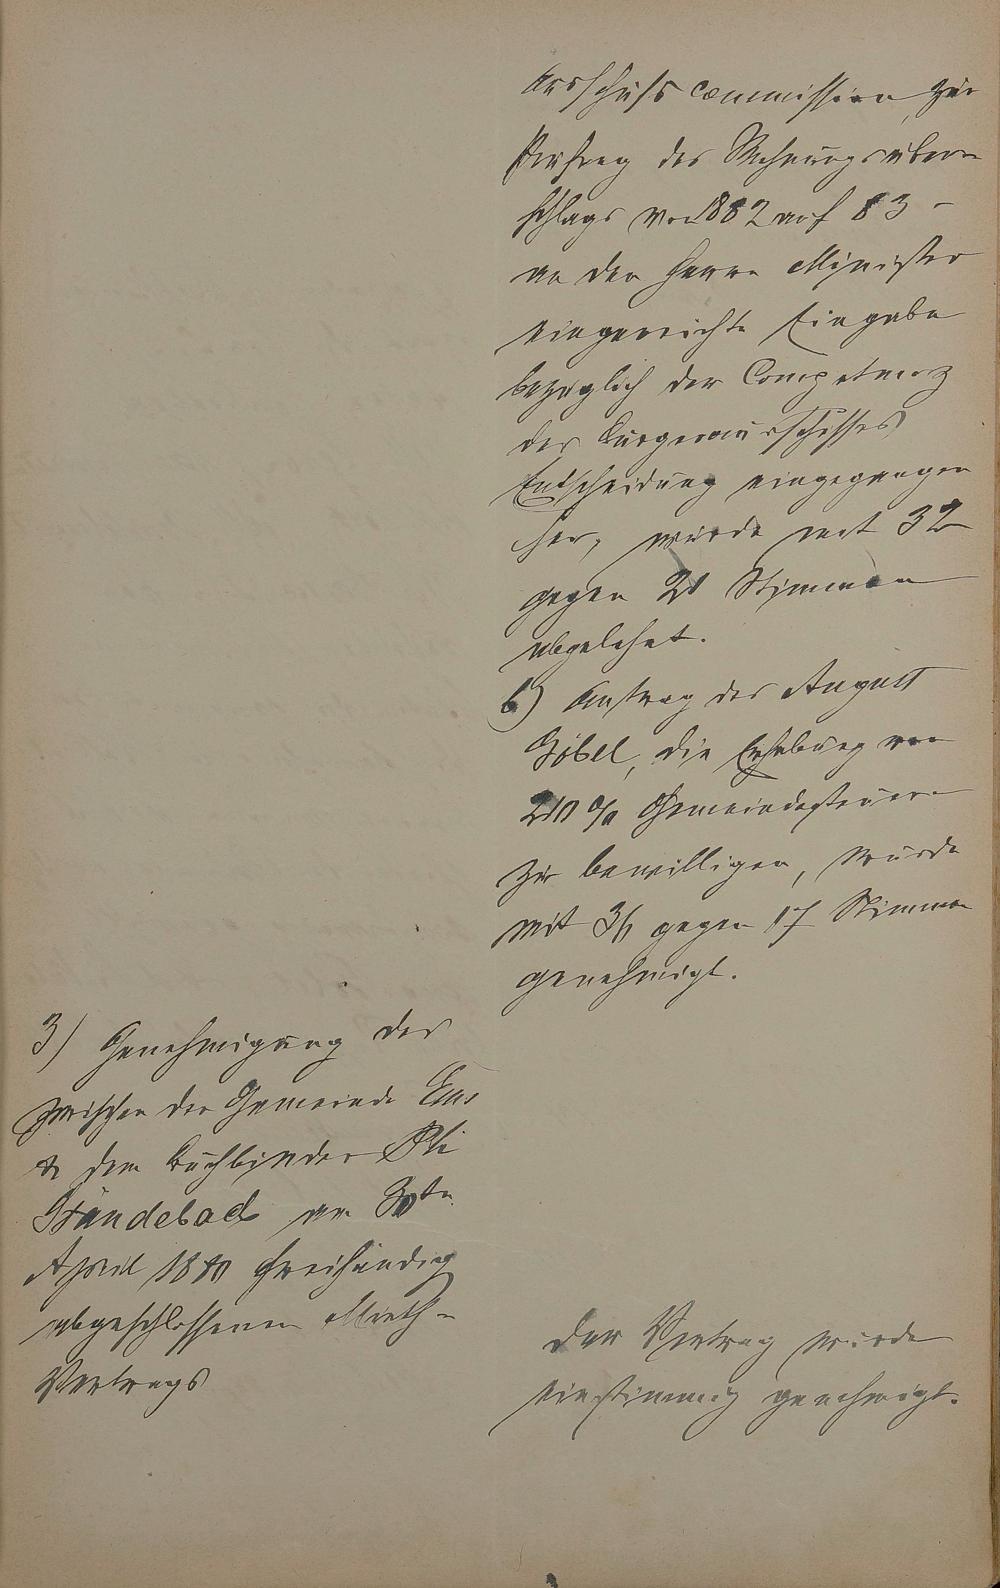 Ausschuss commission zur
Prüfung des Rechnungsüber=
schlags von 1882 auf 83 –
an den Herrn Minister
eingereichte Eingabe
bezüglich der Competenz
des Bürgerausschusses
Entscheidung eingegangen
sei, wurde mit 32
gegen 21 Stimmen
abgelehnt.
b) Antrag des August
Göbel, die Erhebung von
210 % Gemeindesteuern
zu bewilligen, wurde
mit 36 gegen 17 Stimmen
genehmigt.
3) Genehmigung des
zwischen der Gemeinde Ems
& dem Buchbinder Ph.
am 30ten
April 1880 freihändig
abgeschlossenen Mieth-
Vertrags
Der Vertrag wurde
einstimmig genehmigt.